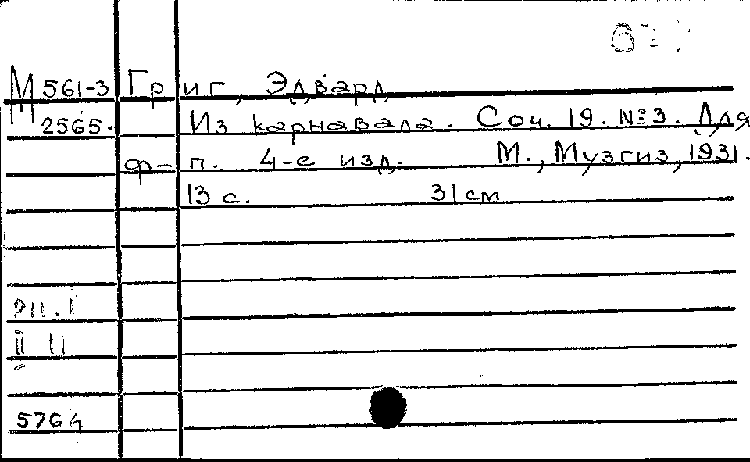 М 561-3 Григ, Эдвард
2565. Из карнавала. Соч. 19. №3. Для
ф-п. 4-е изд. М., Музгиз, 1931.
13 с. 31 см
II 11
5764